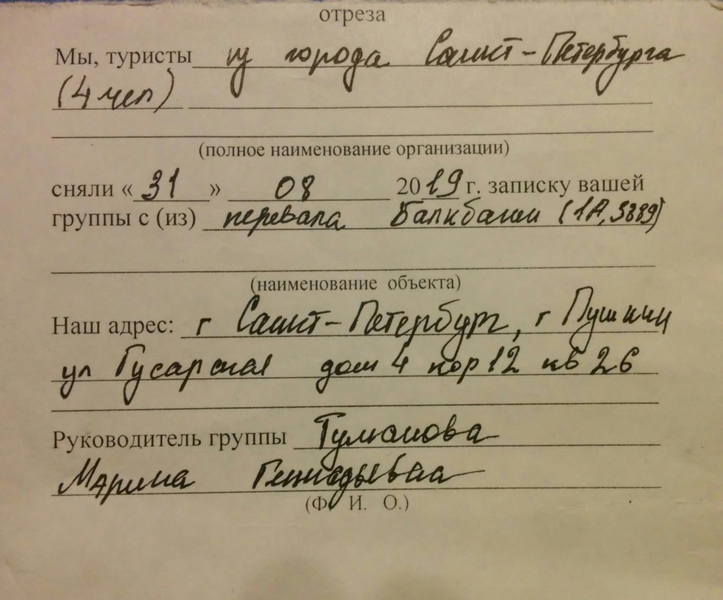 отреза
Мы, туристы из города Санкт-Петербурга
(4 чел)
(полное наименование организации)
сняли «31» 08 2019 г. записку вашей
группы с (из) перевала Балкбаши (1А, 3889)
(наименование объекта)
Наш адрес: г Санкт-Петербург, г Пушкин
ул Гусарская дом 4 кор 12 кв 26
Руководитель группы Туманова
Марина Геннадьевна
(Ф. И. О.)